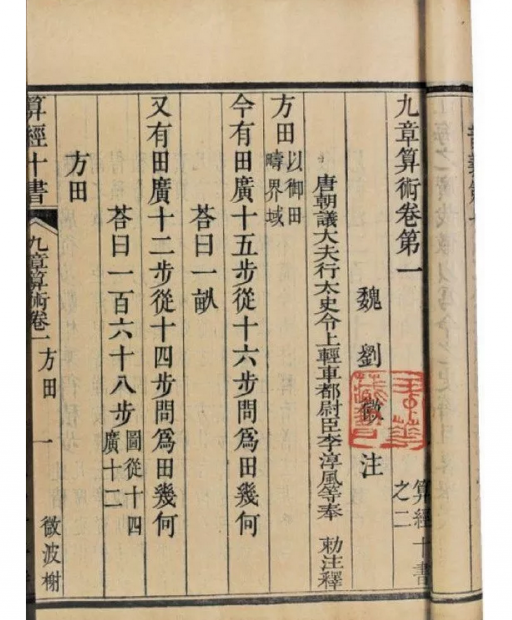 九章算術卷第一
算經十書之二
魏劉徽注
唐朝議大夫行太史令上輕車都尉臣李淳風等奉 勅注釋
方田以御田疇界域
今有田廣十五步從十六步問爲田幾何
荅曰一畝
又有田廣十二步從十四步問爲田幾何
荅曰一百六十八步圖從十四廣十二
方田
算經十書
九章算術卷一 方田
一
微波榭